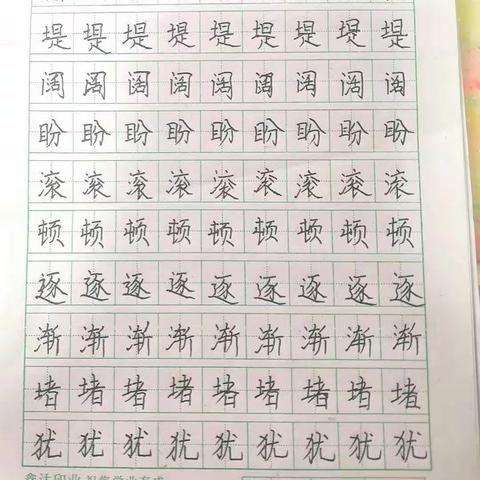 堤堤堤堤堤堤堤堤堤
阔阔阔阔阔阔阔阔阔
盼盼盼盼盼盼盼盼盼
滚滚滚滚滚滚滚滚滚
顿顿顿顿顿顿顿顿顿
逐逐逐逐逐逐逐逐逐
渐渐渐渐渐渐渐渐渐
堵堵堵堵堵堵堵堵堵
犹犹犹犹犹犹犹犹犹